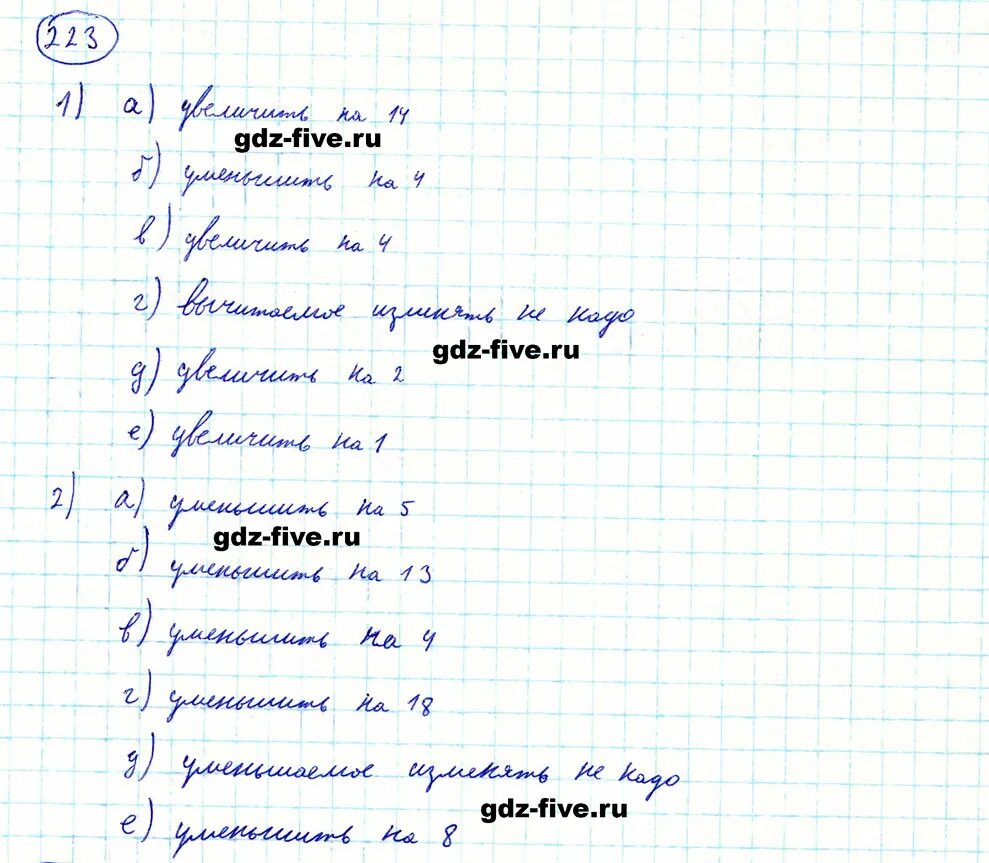 223
1) а) увеличить на 14
gdz-five.ru
б) уменьшить на 4
в) увеличить на 4
г) вычитаемое изменять не надо
gdz-five.ru
д) увеличить на 2
е) увеличить на 1
2) а) уменьшить на 5
gdz-five.ru
б) уменьшить на 13
в) уменьшить на 4
г) уменьшить на 18
д) уменьшаемое изменять не надо
gdz-five.ru
е) уменьшить на 8